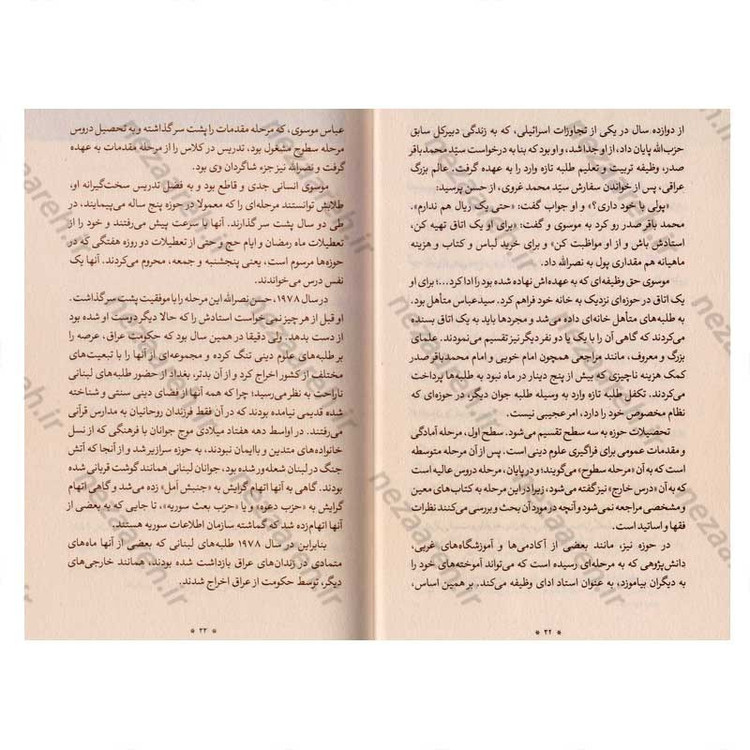 از دوازده سال در یکی از تجاوزات اسرائیلی، که به زندگی دبیرکل سابق
حزب‌الله پایان داد، از او جدا شد، و او بود که بنا به درخواست سیّد محمدباقر
صدر، وظیفه تربیت و تعلیم طلبه تازه وارد را به عهده گرفت. عالم بزرگ
عراقی، پس از خواندن سفارش سیّد محمد غروی، از حسن پرسید:
«پولی با خود داری؟» و او جواب گفت: «حتی یک ریال هم ندارم».
محمد باقر صدر رو کرد به موسوی و گفت: «برای او یک اتاق تهیه کن،
استادش باش و از او مواظبت کن» و برای خرید لباس و کتاب و هزینه
ماهیانه هم مقداری پول به نصرالله داد.
موسوی حق وظیفه‌ای که به عهده‌اش نهاده شده بود را ادا کرد...؛ برای او
یک اتاق در حوزه‌ای نزدیک به خانه خود فراهم کرد. سیدعباس متأهل بود.
به طلبه‌های متأهل خانه‌ای داده می‌شد و مجردها باید به یک اتاق بسنده
می‌کردند که گاهی آن را با یک یا دو نفر دیگر نیز تقسیم می‌نمودند. علمای
بزرگ و معروف، مانند مراجعی همچون امام خویی و امام محمدباقر صدر
کمک هزینه ناچیزی که بیش از پنج دینار در ماه نبود به طلبه‌ها پرداخت
می‌کردند. تکفل طلبه تازه وارد به وسیله طلبه جوان دیگر، در حوزه‌ای که
نظام مخصوص خود را دارد، امر عجیبی نیست.
تحصیلات حوزه به سه سطح تقسیم می‌شود. سطح اول، مرحله آمادگی
و مقدمات عمومی برای فراگیری علوم دینی است. پس از آن مرحله متوسطه
است که به آن «مرحله سطوح» می‌گویند؛ و در پایان، مرحله دروس عالیه است
که به آن «درس خارج» نیز گفته می‌شود، زیرا در این مرحله به کتاب‌های معین
و مشخصی مراجعه نمی‌شود و آنچه در مورد آن بحث و بررسی می‌کنند نظرات
فقها و اساتید است.
در حوزه نیز، مانند بعضی از آکادمی‌ها و آموزشگاه‌های غربی،
دانش‌پژوهی که به مرحله‌ای رسیده است که می‌تواند آموخته‌های خود را
به دیگران بیاموزد، به عنوان استاد ادای وظیفه می‌کند. بر همین اساس،
* ۲۲ *
عباس موسوی، که مرحله مقدمات را پشت سر گذاشته و به تحصیل دروس
مرحله سطوح مشغول بود، تدریس در کلاس را از مرحله مقدمات به عهده
گرفت و نصرالله نیز جزء شاگردان وی بود.
موسوی انسانی جدی و قاطع بود و به فضل تدریس سخت‌گیرانه او،
طلابش توانستند مرحله‌ای را که معمولا در حوزه پنج ساله می‌پیمایند، در
طی دو سال پشت سر گذارند. آنها با سرعت پیش می‌رفتند و خود را از
تعطیلات ماه رمضان و ایام حج و حتی از تعطیلات دو روزه هفتگی که در
حوزه‌ها مرسوم است، یعنی پنجشنبه و جمعه، محروم می‌کردند. آنها یک
نفس درس می‌خواندند.
در سال ۱۹۷۸، حسن نصرالله این مرحله را با موفقیت پشت سر گذاشت.
او قبل از هر چیز نمی‌خواست استادش را که حالا دیگر دوست او شده بود
از دست بدهد. ولی دقیقا در همین سال بود که حکومت عراق، عرصه را
بر طلبه‌های علوم دینی تنگ کرده و مجموعه‌ای از آنها را با تبعیت‌های
مختلف از کشور اخراج کرد و از آن بدتر، بغداد از حضور طلبه‌های لبنانی
ناراحت به نظر می‌رسید؛ چرا که همه آنها از فضای دینی سنتی و شناخته
شده قدیمی نیامده بودند که در آن فقط فرزندان روحانیان به مدارس قرآنی
می‌رفتند. در اواسط دهه هفتاد میلادی موج جوانان با فرهنگی که از نسل
خانواده‌های متدین و باایمان نبودند، به حوزه سرازیر شد و از آنجا که آتش
جنگ در لبنان شعله‌ور شده بود، جوانان لبنانی همانند گوشت قربانی شده
بودند. گاهی به آنها اتهام گرایش به «جنبش اَمل» زده می‌شد و گاهی اتهام
گرایش به «حزب دعوه» یا «حزب بعث سوریه»، تا جایی که به بعضی از
آنها اتهام زده شد که گماشته سازمان اطلاعات سوریه هستند.
بنابراین در سال ۱۹۷۸ طلبه‌های لبنانی که بعضی از آنها ماه‌های
متمادی در زندان‌های عراق بازداشت شده بودند، همانند خارجی‌های
دیگر، توسط حکومت از عراق اخراج شدند.
* ۲۳ *
nezaareh.ir